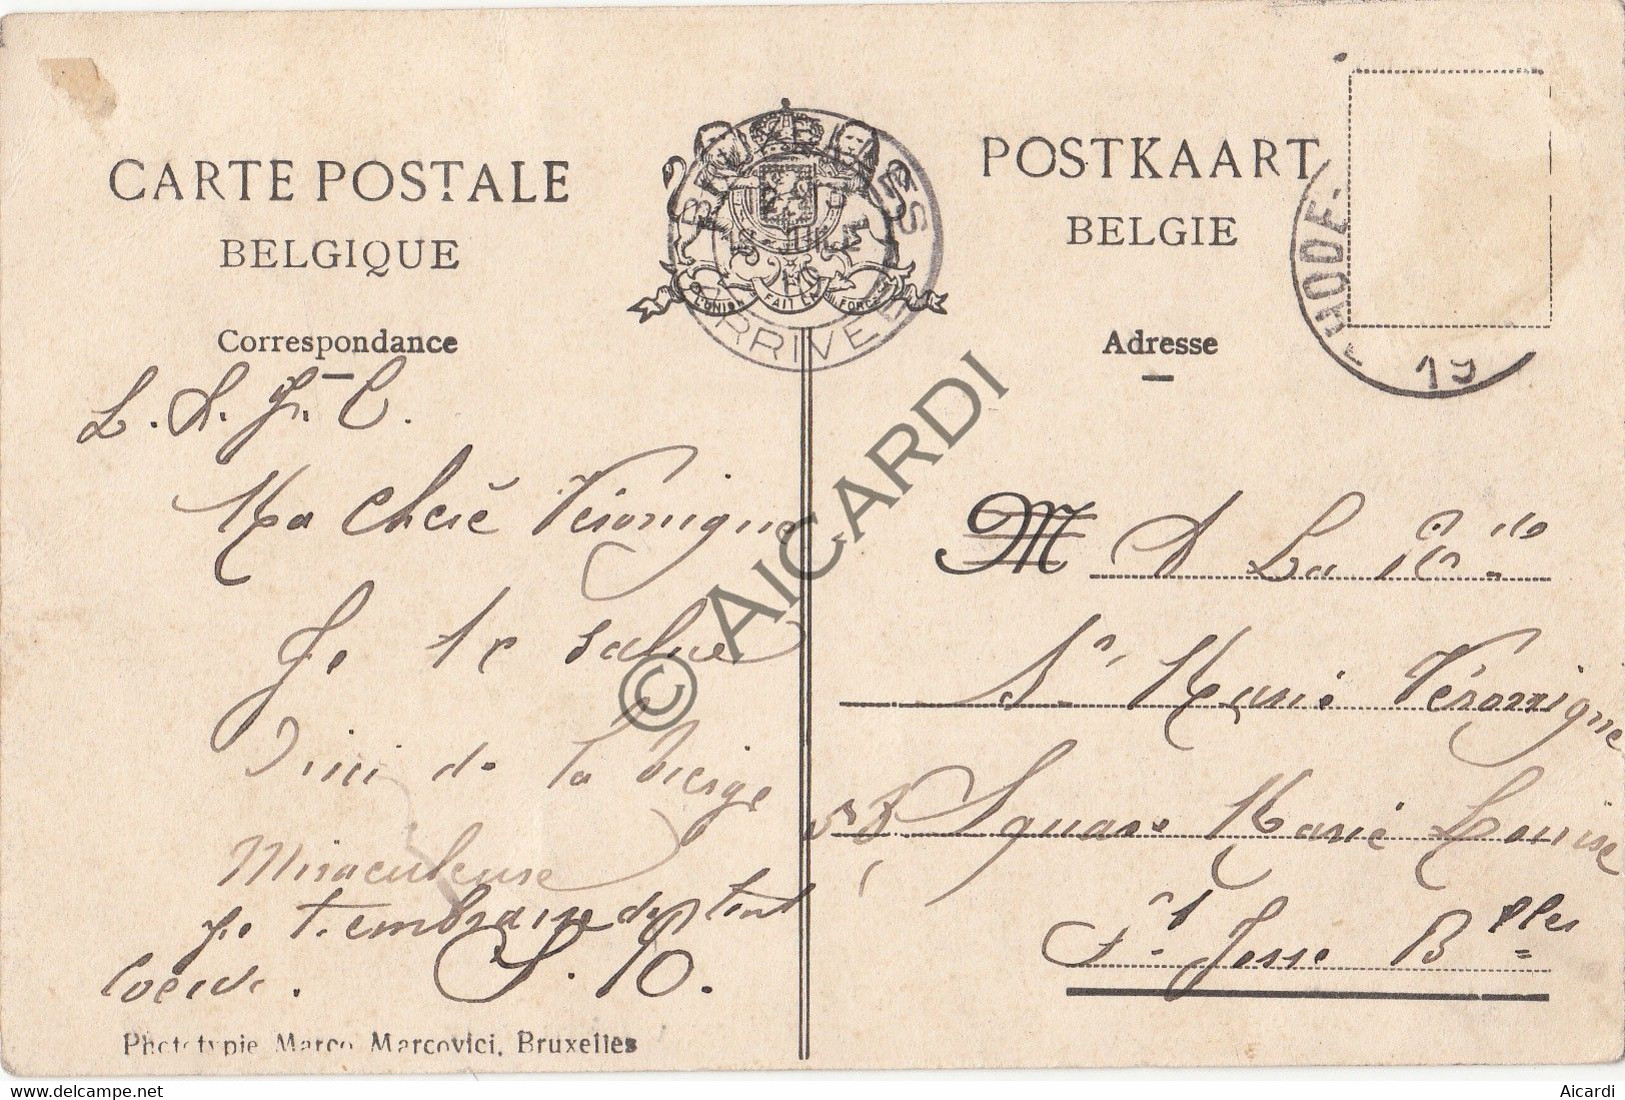 CARTE POSTALE
BELGIQUE
Correspondance
POSTKAART
BELGIE
Adresse
BRUXELLES
ARRIVEE
L'UNION FAIT LA FORCE
RODE
19
L. S. J. C.
Ma Cheré Véronique
Je te salue
de la Vierge
Miraculeuse
je t'embrasse de tout
Coeur.
S. O.
M A La
Sr Marie Véronique
53 Square Marie Louise
St Josse Blles
Phototypie Marco Marcovici, Bruxelles
© AICARDI
www.delcampe.net
Aicardi